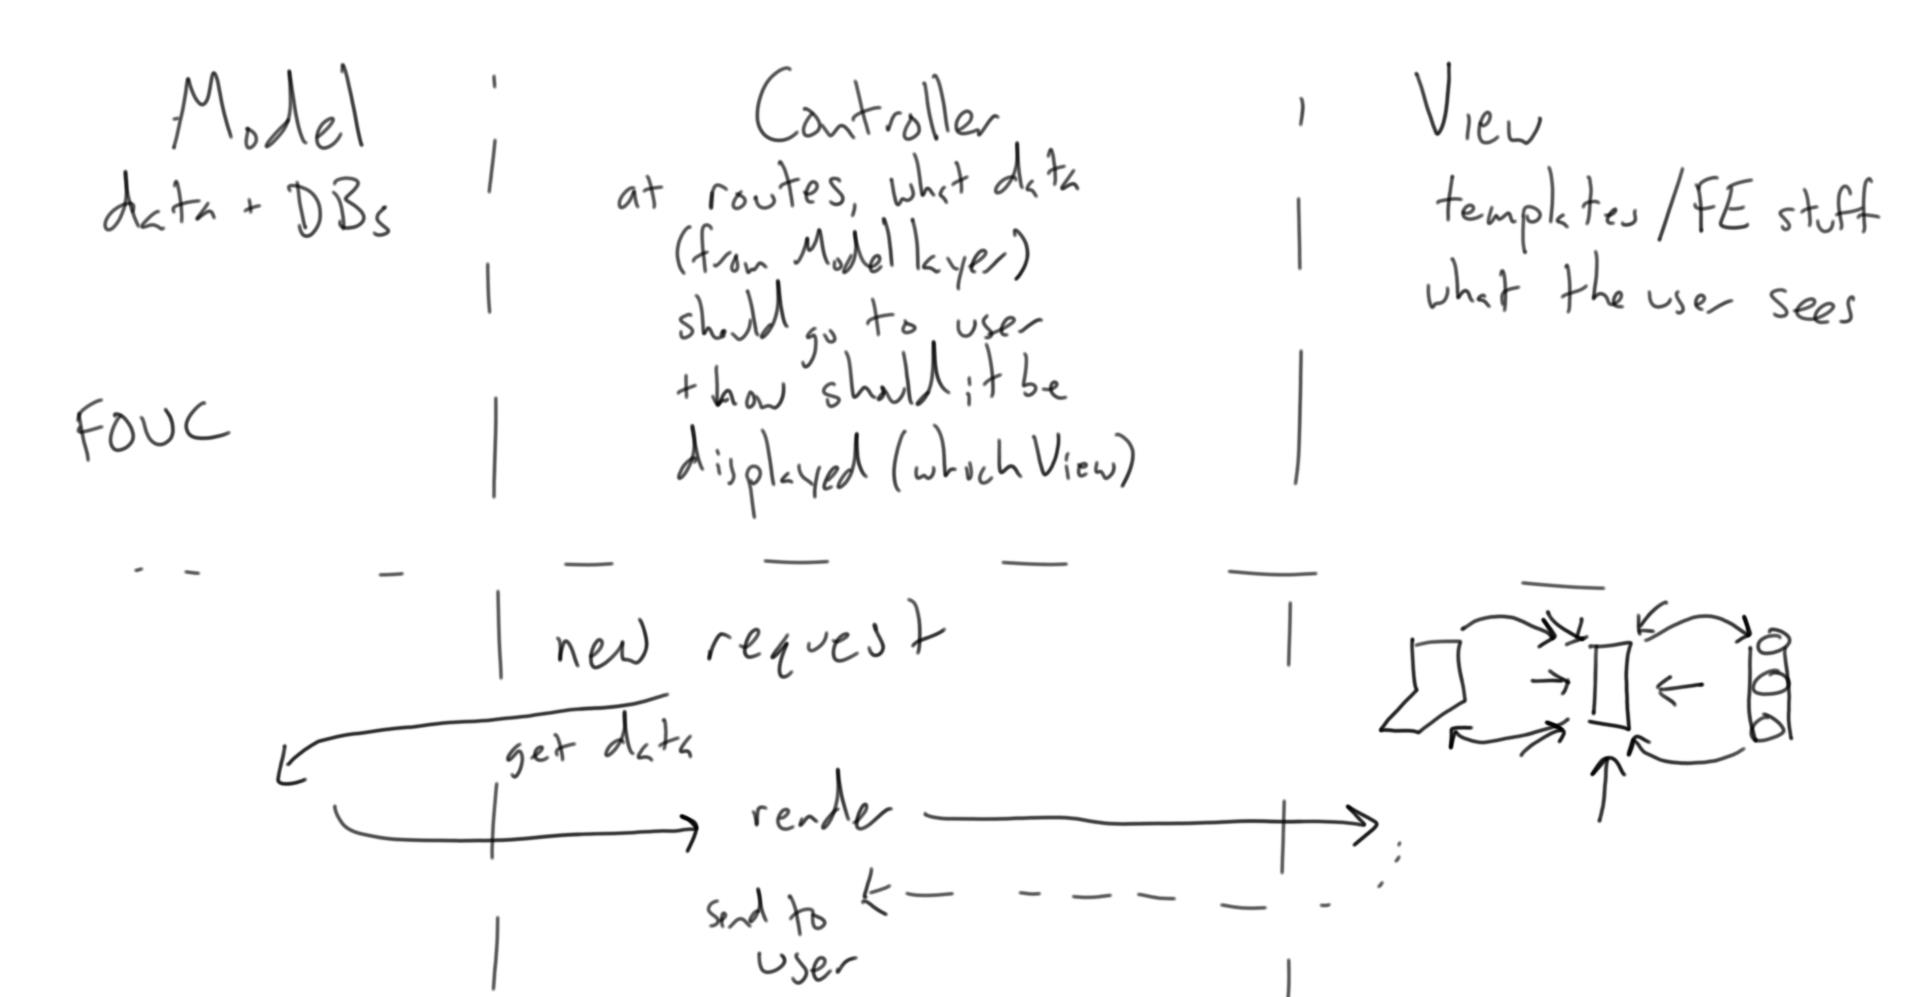 Model
data + DBs
FOUC
Controller
at routes, what data
(from Model layer)
should go to user
+ how should it be
displayed (which View)
View
templates/FE stuff
what the user sees
new request
get data
render
send to
user